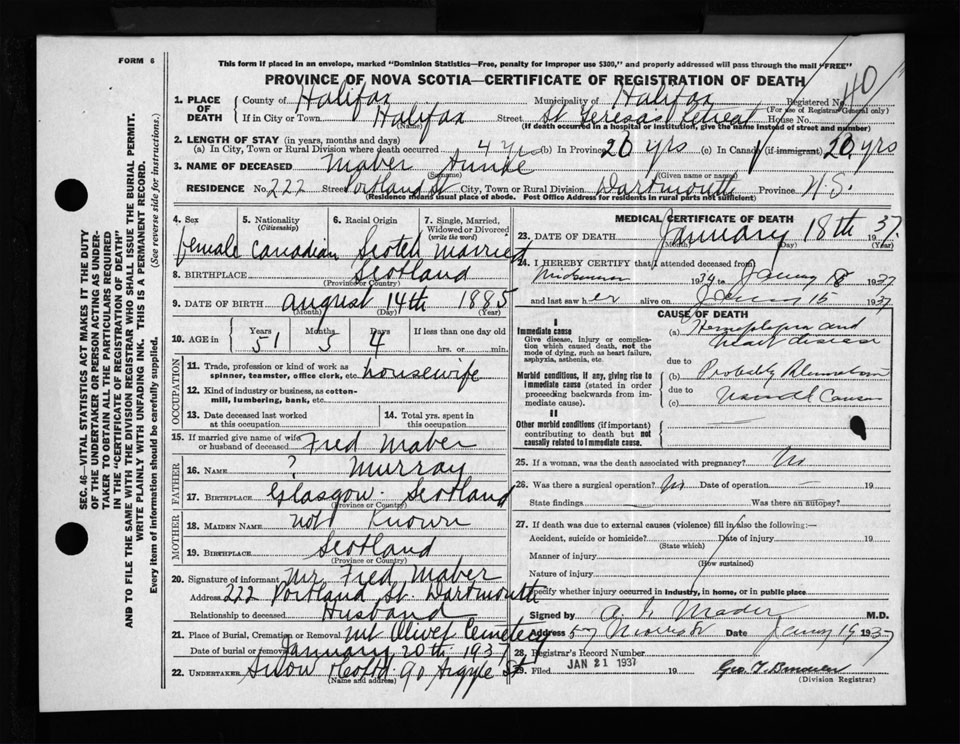 FORM 6
This form if placed in an envelope, marked "Dominion Statistics—Free, penalty for improper use $300," and properly addressed will pass through the mail "FREE"
PROVINCE OF NOVA SCOTIA—CERTIFICATE OF REGISTRATION OF DEATH
40
1. PLACE OF DEATH County of Halifax Municipality of Halifax Registered No. (For use of Registrar General only)
If in City or Town Halifax (Name) Street St Teresas Retreat House No.
(If death occurred in a hospital or institution, give the name instead of street and number)
2. LENGTH OF STAY (in years, months and days)
(a) In City, Town or Rural Division where death occurred 4 yrs (b) In Province 20 yrs (c) In Canada (if immigrant) 20 yrs
3. NAME OF DECEASED Maber Annie
(Surname) (Given name or names)
RESIDENCE No. 222 Street Portland St City, Town or Rural Division Dartmouth Province N.S.
(Residence means usual place of abode. Post Office Address for residents in rural parts not sufficient)
4. Sex female
5. Nationality (Citizenship) Canadian
6. Racial Origin Scotch
7. Single, Married, Widowed or Divorced (write the word) Married
8. BIRTHPLACE Scotland
(Province or Country)
9. DATE OF BIRTH August 14th 1885
(Month) (Day) (Year)
10. AGE in Years 51 Months 5 Days 4 If less than one day old
hrs. or min.
OCCUPATION
11. Trade, profession or kind of work as spinner, teamster, office clerk, etc. housewife
12. Kind of industry or business, as cotton-mill, lumbering, bank, etc.
13. Date deceased last worked at this occupation
14. Total yrs. spent in this occupation
15. If married give name of wife or husband of deceased Fred Maber
FATHER
16. NAME ? Murray
17. BIRTHPLACE Glasgow. Scotland
(Province or Country)
MOTHER
18. MAIDEN NAME not known
19. BIRTHPLACE Scotland
(Province or Country)
20. Signature of informant Mr. Fred Maber
Address 222 Portland St. Dartmouth
Relationship to deceased Husband
21. Place of Burial, Cremation or Removal Mt Olivet Cemetery
Date of burial or removal January 20th 1937
22. UNDERTAKER Snow & Co Ltd 90 Argyle St
(Name and address)
MEDICAL CERTIFICATE OF DEATH
23. DATE OF DEATH January 18th 1937.
(Month) (Day) (Year)
24. I HEREBY CERTIFY that I attended deceased from
1934 to Jany 18 1937
and last saw her alive on Jany 15 1937
CAUSE OF DEATH
I
Immediate cause
Give disease, injury or complication which caused death, not the mode of dying, such as heart failure, asphyxia, asthenia, etc.
(a) Hemiplegia and heart disease
due to
Morbid conditions, if any, giving rise to immediate cause (stated in order proceeding backwards from immediate cause).
(b) Probably
due to
(c)
II
Other morbid conditions (if important) contributing to death but not causally related to immediate cause.
25. If a woman, was the death associated with pregnancy? No
26. Was there a surgical operation? No Date of operation —
State findings Was there an autopsy?
27. If death was due to external causes (violence) fill in also the following:—
Accident, suicide or homicide? Date of injury 19
(State which)
Manner of injury
(How sustained)
Nature of injury
Specify whether injury occurred in industry, in home, or in public place
Signed by Mader M.D.
Address 57 Morris St Date Jany 19 1937
28. Registrar's Record Number
29. Filed JAN 21 1937 19
(Division Registrar)
SEC. 46—VITAL STATISTICS ACT MAKES IT THE DUTY
OF THE UNDERTAKER OR PERSON ACTING AS UNDER-
TAKER TO OBTAIN ALL THE PARTICULARS REQUIRED
IN THE "CERTIFICATE OF REGISTRATION OF DEATH"
AND TO FILE THE SAME WITH THE DIVISION REGISTRAR WHO SHALL ISSUE THE BURIAL PERMIT.
WRITE PLAINLY WITH UNFADING INK. THIS IS A PERMANENT RECORD.
Every item of information should be carefully supplied. (See reverse side for instructions.)